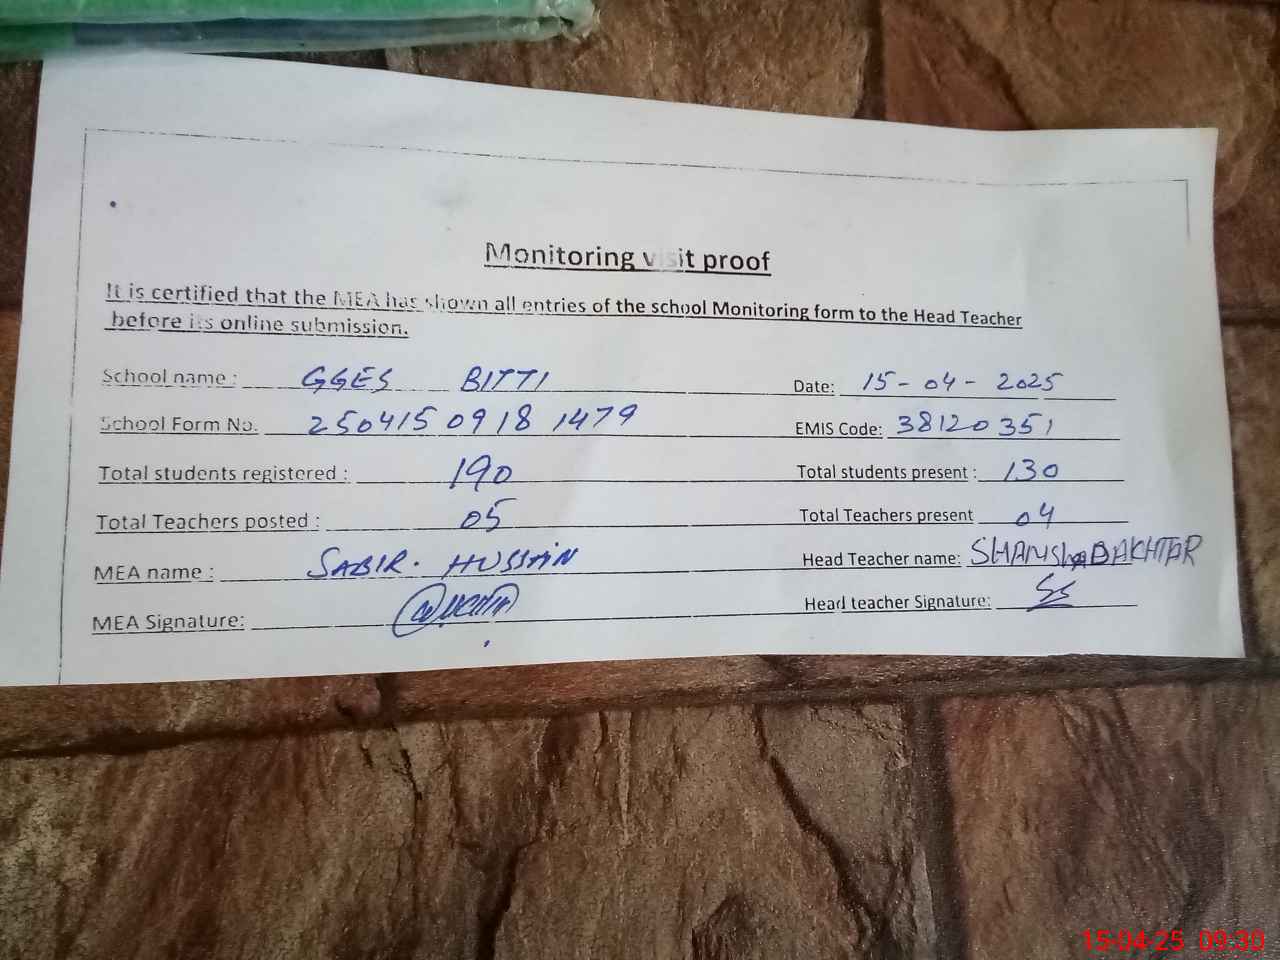 Monitoring visit proof
It is certified that the MEA has shown all entries of the school Monitoring form to the Head Teacher
before its online submission.
School name : GGES BITTI Date: 15-04-2025
School Form No. 250415 0918 1479 EMIS Code: 38120351
Total students registered : 190 Total students present : 130
Total Teachers posted : 05 Total Teachers present 04
MEA name : SABIR. HUSSAIN Head Teacher name:
MEA Signature: Head teacher Signature:
15-04-25 09:30